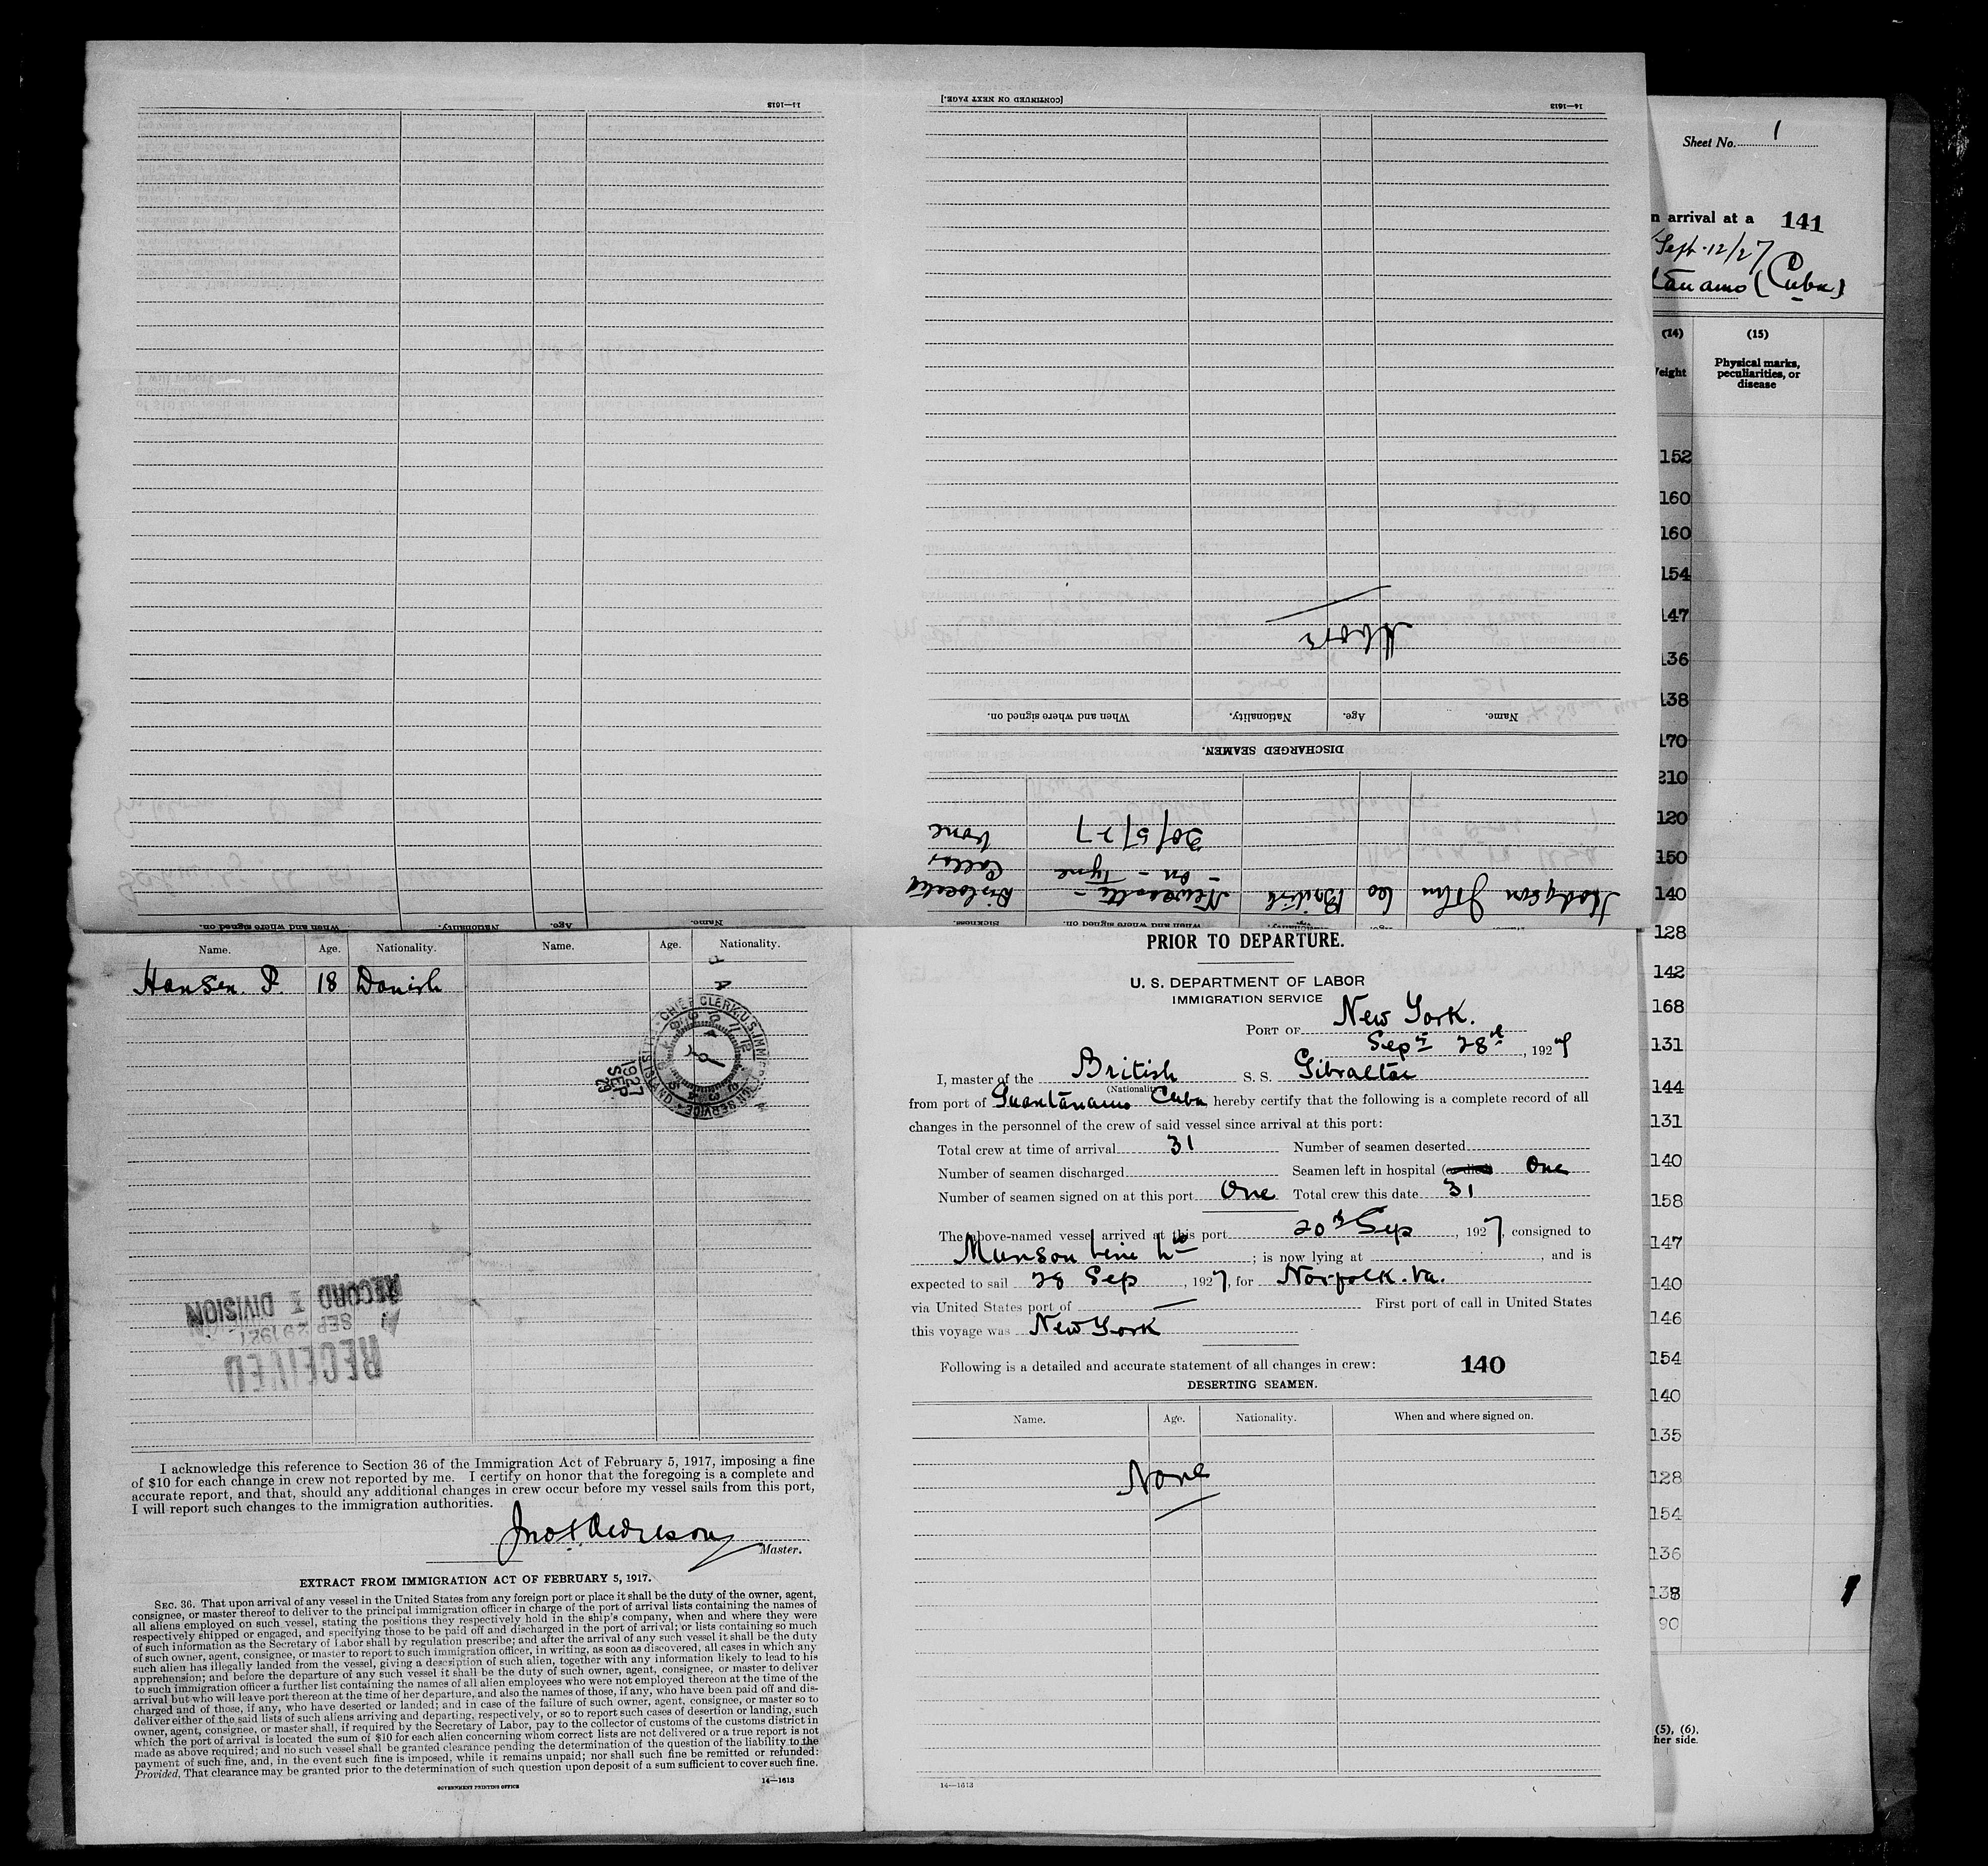 14—1613
[CONTINUED ON NEXT PAGE.]
14—1613
None
Name. Age. Nationality. When and where signed on.
DISCHARGED SEAMEN.
None
20/5/27
Collar
- on - Tyne
Hodgson John 60 British Newcastle - Dislocated
Name. Age. Nationality. When and where signed on. Sickness.
Name. Age. Nationality. When and where signed on.
Name. Age. Nationality. Name. Age. Nationality.
Hansen. P. 18 Danish
CHIEF CLERK U.S. IMMIGRATION SERVICE
1927
SEP
29
RECEIVED
SEP 29 1927
RECORD DIVISION
I acknowledge this reference to Section 36 of the Immigration Act of February 5, 1917, imposing a fine
of $10 for each change in crew not reported by me. I certify on honor that the foregoing is a complete and
accurate report, and that, should any additional changes in crew occur before my vessel sails from this port,
I will report such changes to the immigration authorities.
Master.
EXTRACT FROM IMMIGRATION ACT OF FEBRUARY 5, 1917.
SEC. 36. That upon arrival of any vessel in the United States from any foreign port or place it shall be the duty of the owner, agent,
consignee, or master thereof to deliver to the principal immigration officer in charge of the port of arrival lists containing the names of
all aliens employed on such vessel, stating the positions they respectively hold in the ship's company, when and where they were
respectively shipped or engaged, and specifying those to be paid off and discharged in the port of arrival; or lists containing so much
of such information as the Secretary of Labor shall by regulation prescribe; and after the arrival of any such vessel it shall be the duty
of such owner, agent, consignee, or master to report to such immigration officer, in writing, as soon as discovered, all cases in which any
such alien has illegally landed from the vessel, giving a description of such alien, together with any information likely to lead to his
apprehension; and before the departure of any such vessel it shall be the duty of such owner, agent, consignee, or master to deliver
to such immigration officer a further list containing the names of all alien employees who were not employed thereon at the time of the
arrival but who will leave port thereon at the time of her departure, and also the names of those, if any, who have been paid off and dis-
charged and of those, if any, who have deserted or landed; and in case of the failure of such owner, agent, consignee, or master so to
deliver either of the said lists of such aliens arriving and departing, respectively, or so to report such cases of desertion or landing, such
owner, agent, consignee, or master shall, if required by the Secretary of Labor, pay to the collector of customs of the customs district in
which the port of arrival is located the sum of $10 for each alien concerning whom correct lists are not delivered or a true report is not
made as above required; and no such vessel shall be granted clearance pending the determination of the question of the liability to the
payment of such fine, and, in the event such fine is imposed, while it remains unpaid; nor shall such fine be remitted or refunded:
Provided, That clearance may be granted prior to the determination of such question upon deposit of a sum sufficient to cover such fine.
GOVERNMENT PRINTING OFFICE 14—1613
PRIOR TO DEPARTURE.
U. S. DEPARTMENT OF LABOR
IMMIGRATION SERVICE
PORT OF New York.
Sept 28th, 1927
I, master of the British S. S. Gibraltar
(Nationality)
from port of Guantanamo Cuba hereby certify that the following is a complete record of all
changes in the personnel of the crew of said vessel since arrival at this port:
Total crew at time of arrival 31 Number of seamen deserted
Number of seamen discharged Seamen left in hospital (or died) One
Number of seamen signed on at this port One Total crew this date 31
The above-named vessel arrived at this port 20th Sep, 1927, consigned to
Munson Line; is now lying at , and is
expected to sail 28 Sep, 1927, for Norfolk. Va.
via United States port of — First port of call in United States
this voyage was New York
Following is a detailed and accurate statement of all changes in crew: 140
DESERTING SEAMEN.
Name. Age. Nationality. When and where signed on.
None
14—1613
Sheet No. 1
n arrival at a 141
Sept. 12/27
tanamo (Cuba)
(14) (15)
eight Physical marks, peculiarities, or disease
152
160
160
154
147
136
138
170
210
120
150
140
128
142
168
131
144
131
140
158
147
140
146
154
140
135
128
154
136
138
90
(5), (6).
her side.